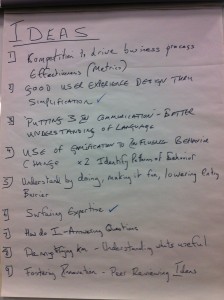 IDEAS
1) Competition to drive business process
Effectiveness (Metrics)
1) GOOD USER EXPERIENCE DESIGN THRU
SIMPLIFICATION ✓
2) PUTTING IN GAMIFICATION - BETTER
UNDERSTANDING OF LANGUAGE
5) USE OF GAMIFICATION TO INFLUENCE BEHAVIOR
CHANGE x2 Identify Pattern of Behavior
3) Understand by doing, making it fun, lowering Entry
Barrier
1) Surfacing Expertise ✓
1) How do I - Answering Questions
2) Demystifying KM - Understanding what's useful
1) Fostering Innovation - Peer Reviewing Ideas